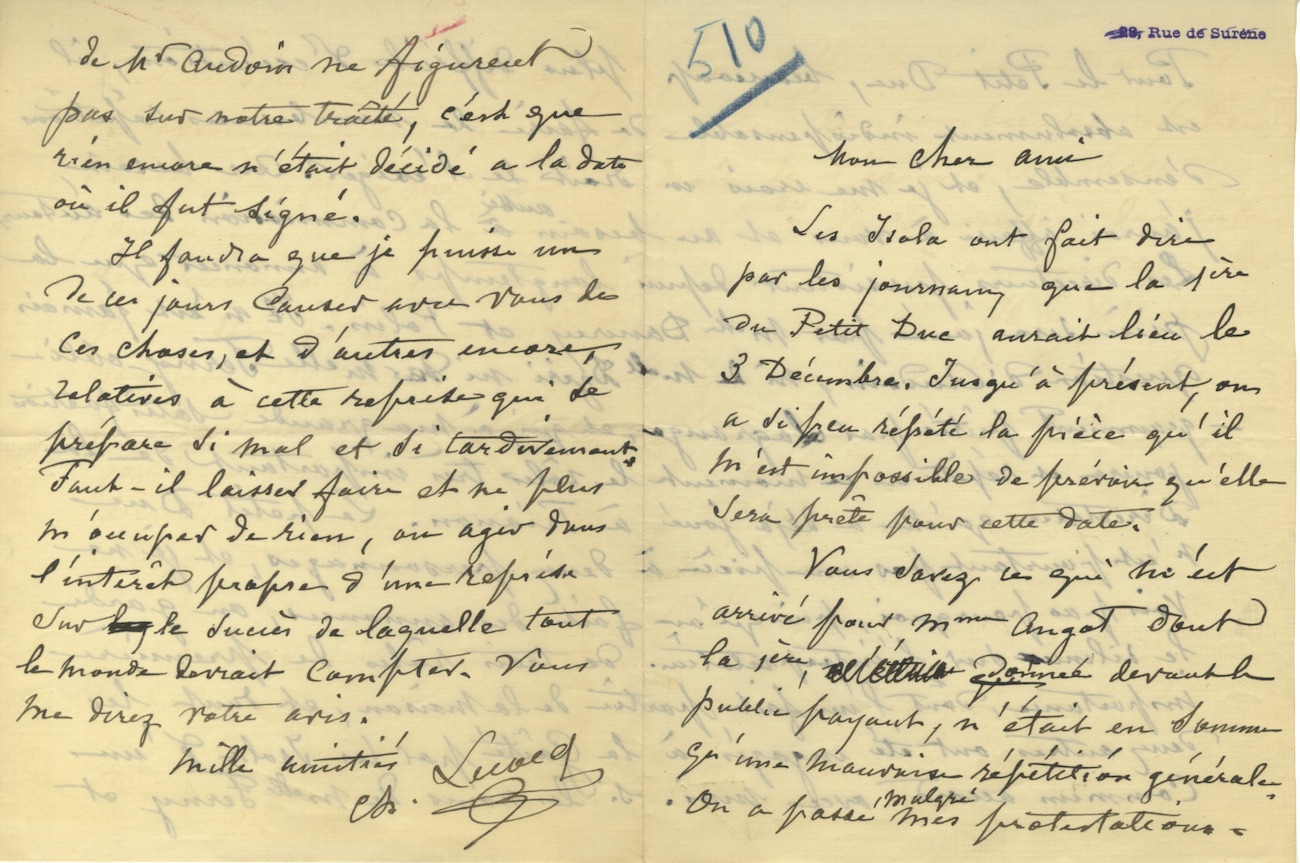 29, Rue de Surène
510
Mon cher ami
Les Isola ont fait dire
par les journaux que la 1ère
du Petit Duc aurait lieu le
3 Décembre. Jusqu'à présent, on
a si peu répété la pièce qu'il
m'est impossible de prévoir qu'elle
sera prête pour cette date.
Vous savez ce qui m'est
arrivé pour Mme Angot dont
la 1ère, donnée devant le
public payant, n'était en somme
qu'une mauvaise répétition générale.
On a passé malgré mes protestations. =
de Mr Audoin ne figurent
pas sur notre traité, c'est que
rien encore n'était décidé a la date
où il fut signé.
Il faudra que je puisse un
de ces jours causer avec vous de
ces choses, et d'autres encore,
relatives à cette reprise qui se
prépare si mal et si tardivement.
Faut-il laisser faire et ne plus
m'occuper de rien, ou agir dans
l'intérêt propre d'une reprise
sur le succès de laquelle tout
le monde devrait compter. Vous
me direz votre avis.
Mille amitiés
Ch. Lecocq